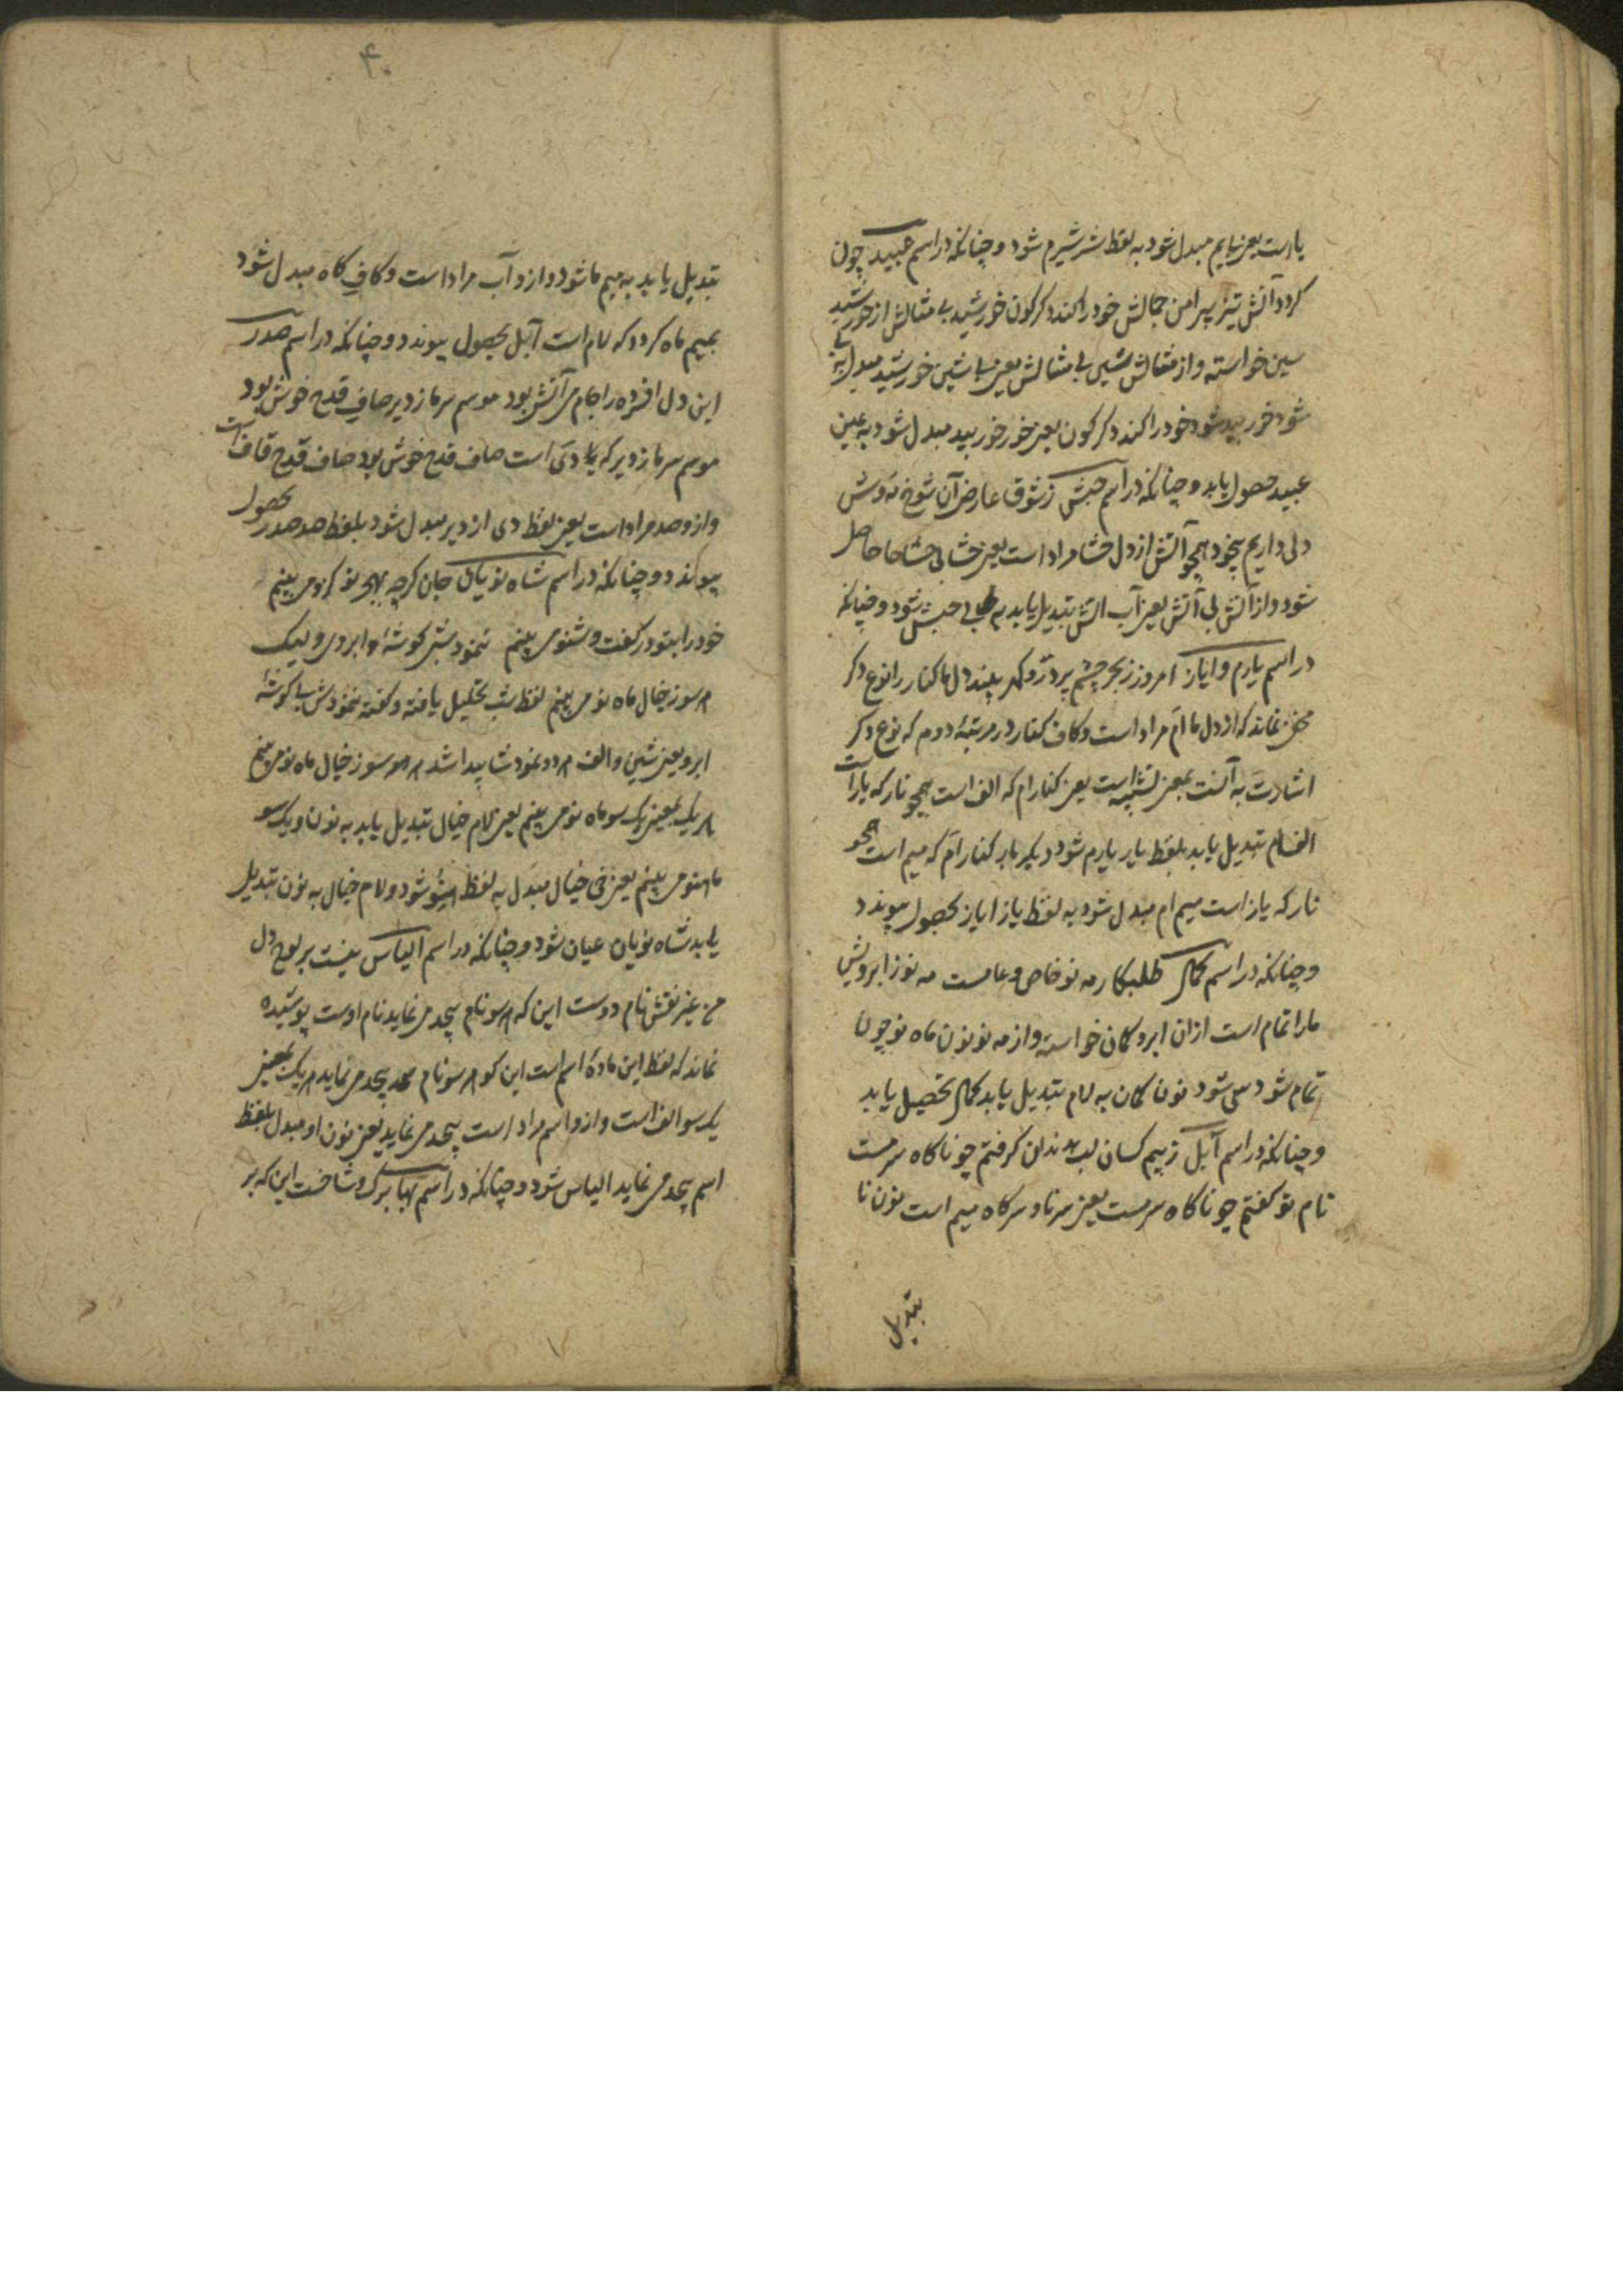 یارست یعنی یایم مبدل شود به لفظ شر شیرم شود و چنانکه در اسم عبید چون
کرد آتش تیز پیرامن جمالش خود را کند دکرکون خورشید بی مثالش از خورشید
سین خواسته و از مثالش شین بی مثالش یعنی شین خورشید مبدل به بی
شود خور بید شود خود را کند دکرکون یعنی خور خوربید مبدل شود به عین
عبید حصول یابد و چنانکه در اسم حبش ز شوق عارض آن شوخ مه وش
دلی داریم بیخود همچو آتش از دل حشا مراد است یعنی حشا بی حشا حا حاصل
شود و از آتش بی آتش یعنی آب آتش تبدیل یابد به بی حبش شود و چنانکه
در اسم یارم و ایاز امروز ز بحر چشم پر در و کهر بیند دل ما کنار را نوع دکر
مخفی نماند که از دل ما ام مراد است و کاف کنار در مرتبهٔ دوم که نوع دکر
اشارت به آنست بمعنی تشبیه است یعنی کنار ام که الف است همچو نار که یار است
الف ام تبدیل یابد بلفظ یار یارم شود دیکر بار کنار ام که میم است همچو
نار که یاز است میم ام مبدل شود به لفظ یاز ایاز بحصول پیوندد
و چنانکه در اسم کمال طلبکار مه نو خاص و عامست مه نو ز ابرویش
ما را تمام است از ان ابرو کمان خواسته و از مه نو نون ماه نو چون
تمام شود سی شود نون کمان به لام تبدیل یابد کمال تحصیل یابد
و چنانکه در اسم آبل ز بیم کسان لب بدندان کرفتم چو ناکاه سرمست
نام تو کفتم چو ناکاه سرمست یعنی سر نا و سر کاه میم است نون نا
تبدیل
۴۰
تبدیل یابد به میم ما شود و از و آب مراد است و کاف کاه مبدل شود
بمیم ماه کردد که لام است آبل بحصول پیوندد و چنانکه در اسم صدر
این دل افسرده را جام می آتش بود موسم سرما ز دیر صاف قدح خوش بود
موسم سرما ز دیر که دی است صاف قدح خوش بود صاف قدح قاف است
و از و صد مراد است یعنی لفظ دی از دیر مبدل شود بلفظ صد صدر بحصول
پیوندد و چنانکه در اسم شاه نویان جان کرچه بهجر تو کرو می بینم
خود را بتو در کفت و شنو می بینم ننمود شبی کوشهٔ ابروی ولیک
هر سوز خیال ماه نو می بینم لفظ شب تحلیل یافته و کفته ننمود ش بی کوشهٔ
ابرو یعنی شین و الف هر دو نمود شا پیدا شد هر سو ز خیال ماه نو می بینم
هر یک بمعنی یک سو ماه نو می بینم یعنی لام خیال تبدیل یابد به نون و یک سو
ماه نو می بینم یعنی خی خیال مبدل به لفظ هنو شود و لام خیال به نون تبدیل
یابد شاه نویان عیان شود و چنانکه در اسم الیاس نیست بر لوح دل
من غیر نقش نام دوست این که هر سو نام بیحد می نماید نام اوست پوشیده
نماند که لفظ این مادهٔ اسم است این کو هر سو نام بیحد می نماید هر یک بمعنی
یک سو الف است و از و اسم مراد است بیحد می نماید یعنی نون او مبدل بلفظ
اسم بیحد می نماید الیاس شود و چنانکه در اسم بها برک و شاخست این که بر